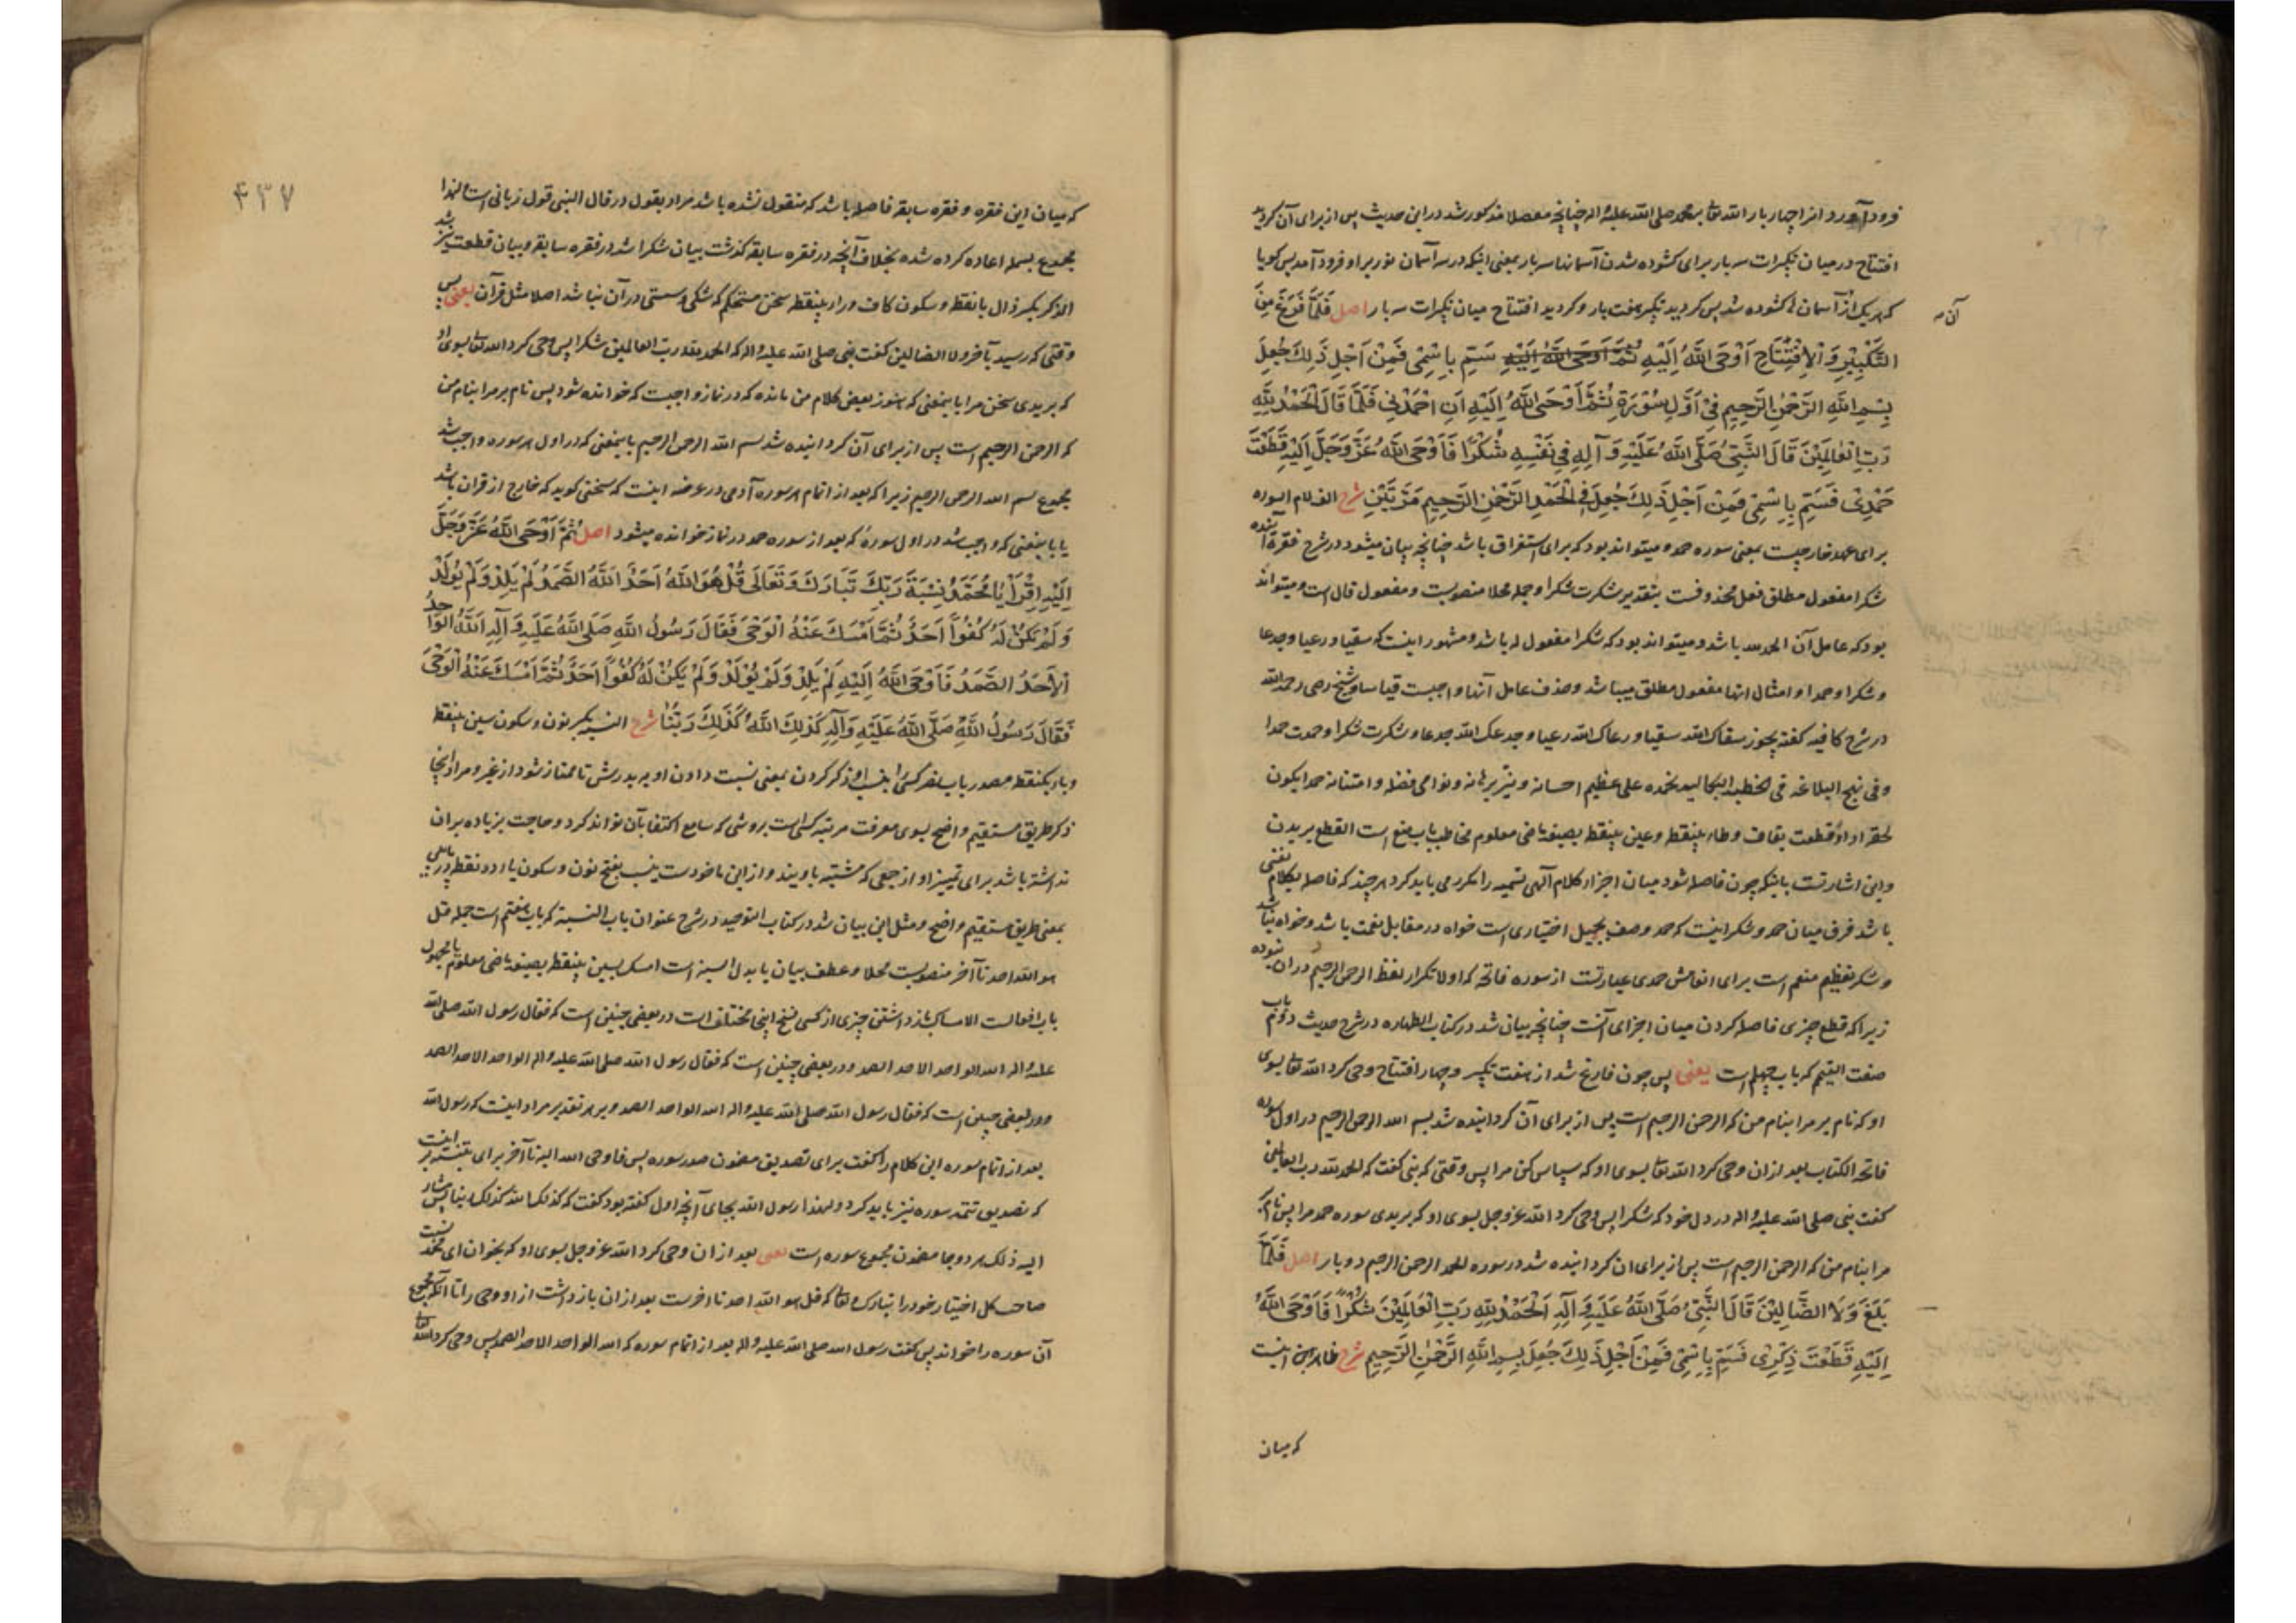 فرود آورد از اجبار بار الله تعا بمحمد صلی الله علیه و اله چنانچه مفصلا مذکور شد در این حدیث پس از برای آن گردید
افتتاح در میان تکبیرات سه بار برای کشوده شدن آسمانها سه بار بمعنی اینکه در سه آسمان نور بر او فرود آمد پس کویا
که هر یک از آن سه آسمان کشوده شد پس کردید تکبیر هفت بار و کردید افتتاح میان تکبیرات سه بار اصل فَلَمَّا فَرَغَ مِنَ
التَّكْبِيْرِ وَ الْاِفْتِتَاحِ اَوْحَى اللّٰهُ اِلَيْهِ ثُمَّ اَوْحَى اللّٰهُ اِلَيْهِ سَمِّ بِاسْمِيْ فَمِنْ اَجْلِ ذَلِكَ جُعِلَ
بِسْمِ اللّٰهِ الرَّحْمٰنِ الرَّحِيْمِ فِيْ اَوَّلِ سُوْرَةٍ ثُمَّ اَوْحَى اللّٰهُ اِلَيْهِ اَنِ احْمَدْنِيْ فَلَمَّا قَالَ الْحَمْدُ لِلّٰهِ
رَبِّ الْعَالَمِيْنَ قَالَ النَّبِيُّ صَلَّى اللّٰهُ عَلَيْهِ وَ آلِهِ فِيْ نَفْسِهِ شُكْرًا فَاَوْحَى اللّٰهُ عَزَّ وَجَلَّ اِلَيْهِ قَطَعْتَ
حَمْدِيْ فَسَمِّ بِاسْمِيْ فَمِنْ اَجْلِ ذَلِكَ جُعِلَ فِي الْحَمْدِ الرَّحْمٰنِ الرَّحِيمِ مَرَّتَيْنِ شرح الف لام السوره
برای عهد خارجیست بمعنی سوره حمد و میتواند بود که برای استغراق باشد چنانچه بیان میشود در شرح فقره آینده
شکرا مفعول مطلق فعل محذوفست بتقدیر شکرت شکرا و جمله محلا منصوبست و مفعول قال است و میتواند
بود که عامل آن الحمد لله باشد و میتواند بود که شکرا مفعول له باشد و مشهور اینست که سقیا و رعیا و جدعا
و شکرا و حمدا و امثال انها مفعول مطلق میباشد و حذف عامل آنها واجبست قیاسا و شیخ رضی رحمه الله
در شرح کافیه کفته یجوز سقاک الله سقیا و رعاک الله رعیا و جدعک الله جدعا و شکرت شکرا و حمدت حمدا
و فی نهج البلاغه فی الخطبه البکالیه نحمده علی عظیم احسانه و نیر برهانه و نوامی فضله و امتنانه حمدا یکون
لحقه اداء قطعت بقاف و طاء بینقطه و عین بینقطه بصیغه ماضی معلوم مخاطب باب منع است القطع بریدن
و این اشارتست باینکه چون فاصله شود میان اجزاء کلام آلهی تسمیه را مکرر می باید کرد هر چند که فاصله بکلام نفسی
باشد فرق میان حمد و شکر اینست که حمد وصف بجمیل اختیاری است خواه در مقابل نعمت باشد و خواه نباشد
و شکر تعظیم منعم است برای انعامش حمدی عبارتست از سوره فاتحه که اولا تکرار لفظ الرحمن الرحیم در ان نبوده
زیرا که قطع چیزی فاصله کردن میان اجزای آنست چنانچه بیان شد در کتاب الطهاره در شرح حدیث دوم باب
صفت التیمم که باب چهلم است یعنی پس چون فارغ شد از هفت تکبیر و چهار افتتاح وحی کرد الله تعا بسوی
او که نام بر مرا بنام من که الرحمن الرحیم است پس از برای آن کردانیده شد بسم الله الرحمن الرحیم در اول سوره
فاتحة الکتاب بعد ازان وحی کرد الله تعا بسوی او که سپاس کن مرا پس وقتی که نبی کفت که الحمد لله رب العالمین
کفت نبی صلی الله علیه و اله در دل خود که شکرا پس وحی کرد الله عز و جل بسوی او که بریدی سوره حمد مرا پس نام بر
مرا بنام من که الرحمن الرحیم است پس از برای ان کردانیده شد در سوره الحمد الرحمن الرحیم دو بار اصل فَلَمَّا
بَلَغَ وَلَا الضَّالِّيْنَ قَالَ النَّبِيُّ صَلَّى اللّٰهُ عَلَيْهِ وَ آلِهِ اَلْحَمْدُ لِلّٰهِ رَبِّ الْعَالَمِيْنَ شُكْرًا فَاَوْحَى اللّٰهُ
اِلَيْهِ قَطَعْتَ ذِكْرِيْ فَسَمِّ بِاسْمِيْ فَمِنْ اَجْلِ ذَلِكَ جُعِلَ بِسْمِ اللّٰهِ الرَّحْمٰنِ الرَّحِيْمِ شرح ظاهر این اینست
که میان
۴۳۷
که میان این فقره و فقره سابقه فاصله باشد که منقول نشده باشد مراد بقول در قال النبی قول زبانی است لهذا
مجموع بسمله اعاده کرده شده بخلاف آنچه در فقره سابقه کذشت بیان شکرا شد در فقره سابقه و بیان قطعت نیز شد
الذکر بکسر ذال بانقطه و سکون کاف و راء بینقطه سخن مستحکم که شکی و سستی در آن نباشد اصلا مثل قرآن یعنی پس
وقتی که رسید بآخر ولا الضالین کفت نبی صلی الله علیه و اله که الحمد لله رب العالمین شکرا پس وحی کرد الله تعا بسوی او
که بریدی سخن مرا باینمعنی که هنوز بعض کلام من مانده که در نماز واجبست که خوانده شود پس نام بر مرا بنام من
که الرحمن الرحیم است پس از برای آن کردانیده شد بسم الله الرحمن الرحیم باینمعنی که در اول هر سوره واجب شد
مجموع بسم الله الرحمن الرحیم زیرا که بعد از اتمام هر سوره آدمی در عرضه اینست که سخنی کوید که خارج از قران باشد
یا باینمعنی که واجب شد در اول سورهٔ که بعد از سوره حمد در نماز خوانده میشود اصل ثُمَّ اَوْحَى اللّٰهُ عَزَّ وَجَلَّ
اِلَيْهِ اِقْرَأْ يَا مُحَمَّدُ نِسْبَةَ رَبِّكَ تَبَارَكَ وَتَعَالَى قُلْ هُوَ اللّٰهُ اَحَدٌ اَللّٰهُ الصَّمَدُ لَمْ يَلِدْ وَلَمْ يُوْلَدْ
وَلَمْ يَكُنْ لَهُ كُفُوًا اَحَدٌ ثُمَّ اَمْسَكَ عَنْهُ الْوَحْيَ فَقَالَ رَسُوْلُ اللّٰهِ صَلَّى اللّٰهُ عَلَيْهِ وَ آلِهِ اَللّٰهُ الْوَاحِدُ
الْاَحَدُ الصَّمَدُ فَاَوْحَى اللّٰهُ اِلَيْهِ لَمْ يَلِدْ وَلَمْ يُوْلَدْ وَلَمْ يَكُنْ لَهُ كُفُوًا اَحَدٌ ثُمَّ اَمْسَكَ عَنْهُ الْوَحْيَ
فَقَالَ رَسُوْلُ اللّٰهِ صَلَّى اللّٰهُ عَلَيْهِ وَ آلِهِ كَذَلِكَ اللّٰهُ كَذَلِكَ رَبُّنَا شرح النسبه بکسر نون و سکون سین بینقطه
و باء یکنقطه مصدر باب نصر کسی را بنسب او ذکر کردن بمعنی نسبت دادن او به پدرش تا ممتاز شود از غیر و مراد اینجا
ذکر طریق مستقیم واضح بسوی معرفت مرتبه کسی است بروشی که سامع اکتفا بآن تواند کرد و حاجت بزیاده بران
نداشته باشد برای تمییز او از جمعی که مشتبه باویند و از این ماخوذست ینسب بفتح نون و سکون یاء دو نقطه در پایین
بمعنی طریق مستقیم واضح و مثل این بیان شد در کتاب التوحید در شرح عنوان باب النسبة که باب هفتم است جمله قل
هو الله احد تا آخر منصوبست محلا و عطف بیان یا بدل نسبة است امسک بسین بینقطه بصیغه ماضی معلوم یا مجهول
باب افعالست الامساک بازداشتن چیزی از کسی نسخ اینجا مختلف است در بعضی چنین است که فقال رسول الله صلی الله
علیه و اله الله الواحد الاحد الصمد و در بعضی چنین است که فقال رسول الله صلی الله علیه و اله الواحد الاحد الصمد
و در بعضی چنین است که فقال رسول الله صلی الله علیه و اله الله الواحد الصمد و بر هر تقدیر مراد اینست که رسول الله
بعد از اتمام سوره این کلام را کفت برای تصدیق مضمون صدر سوره پس فاوحی الله الیه تا آخر برای تنبیه بر اینست
که تصدیق تتمه سوره نیز باید کرد و لهذا رسول الله بجای آنچه اول کفته بود کفت که کذلک الله کذلک ربنا پس مشار
الیه ذلک هر دو جا مضمون مجموع سوره است یعنی بعد ازان وحی کرد الله عز و جل بسوی او که بخوان ای محمد نسبت
صاحب کل اختیار خود را تبارک و تعا که قل هو الله احد تا اخرست بعد ازان بازداشت از او وحی را تا آنکه مجموع
آن سوره را خواند پس کفت رسول الله صلی الله علیه و اله بعد از اتمام سوره که الله الواحد الاحد الصمد پس وحی کرد الله تعا